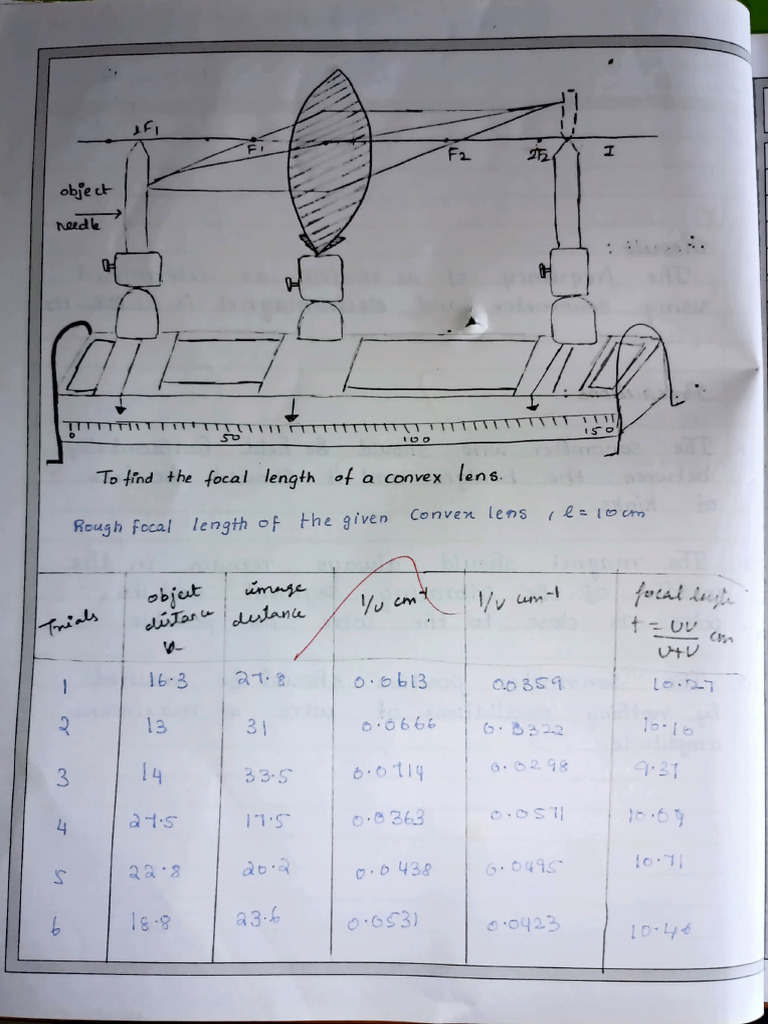 2F1
F1
F2
2F2
I
object
needle
0
50
100
150
To find the focal length of a convex lens.
Rough focal length of the given convex lens, f = 10 cm
Trials
object distance u
image distance
1/u cm-1
1/v cm-1
focal length f = uv/u+v cm
1 16.3 27.8 0.0613 0.0359 10.27
2 13 31 0.0666 0.0322 10.10
3 14 33.5 0.0714 0.0298 9.37
4 27.5 17.5 0.0363 0.0571 10.69
5 22.8 20.2 0.0438 0.0495 10.71
6 18.8 23.6 0.0531 0.0423 10.46